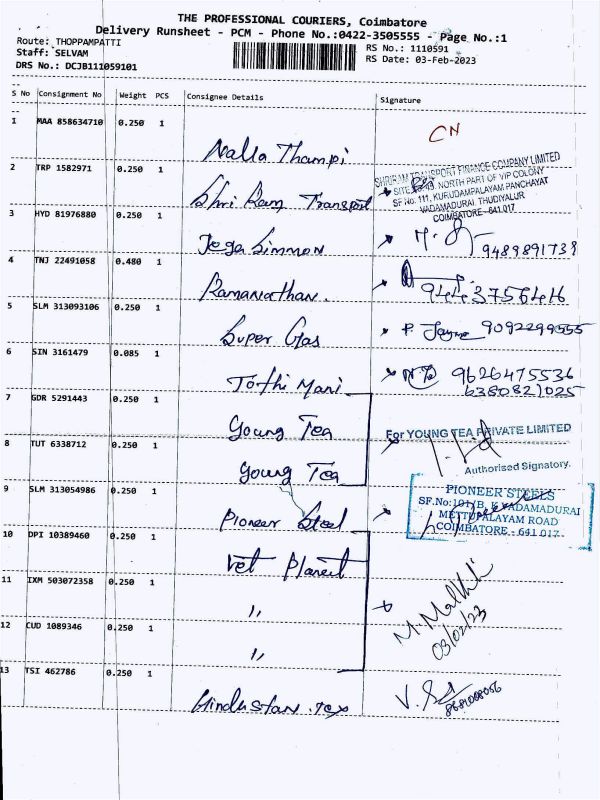 THE PROFESSIONAL COURIERS, Coimbatore
Delivery Runsheet - PCM - Phone No.:0422-3505555 - Page No.:1
Route: THOPPAMPATTI
Staff: SELVAM
DRS No.: DCJB111059101
RS No.: 1110591
RS Date: 03-Feb-2023
S No Consignment No Weight PCS Consignee Details Signature
1 MAA 858634710 0.250 1 Nalla Thampi CN
2 TRP 1582971 0.250 1 Shri Ram Transport
SHRIRAM TRANSPORT FINANCE COMPANY LIMITED
NORTH PART OF VIP COLONY
SF No: 111, KURUDAMPALAYAM PANCHAYAT
VADAMADURAI, THUDIYALUR
COIMBATORE-641 017
3 HYD 81976880 0.250 1 Jega Simmon 9489891739
4 TNJ 22491058 0.480 1 Ramanathan. 9443756416
5 SLM 313093106 0.250 1 Super Gas 9092299555
6 SIN 3161479 0.085 1 Tothi Mani 9626475536
6380821025
7 GDR 5291443 0.250 1 Young Tea
For YOUNG TEA PRIVATE LIMITED
8 TUT 6338712 0.250 1 Young Tea
Authorised Signatory.
9 SLM 313054986 0.250 1 Pioneer Steel
PIONEER STEELS
SF.No:101/B, K.VADAMADURAI
METTUPALAYAM ROAD
COIMBATORE - 641 017
10 DPI 10389460 0.250 1 Vet Planet
11 IXM 503072358 0.250 1 "
M. Malkhi
03/02/23
12 CUD 1089346 0.250 1 "
13 TSI 462786 0.250 1 Hindustan. Tex